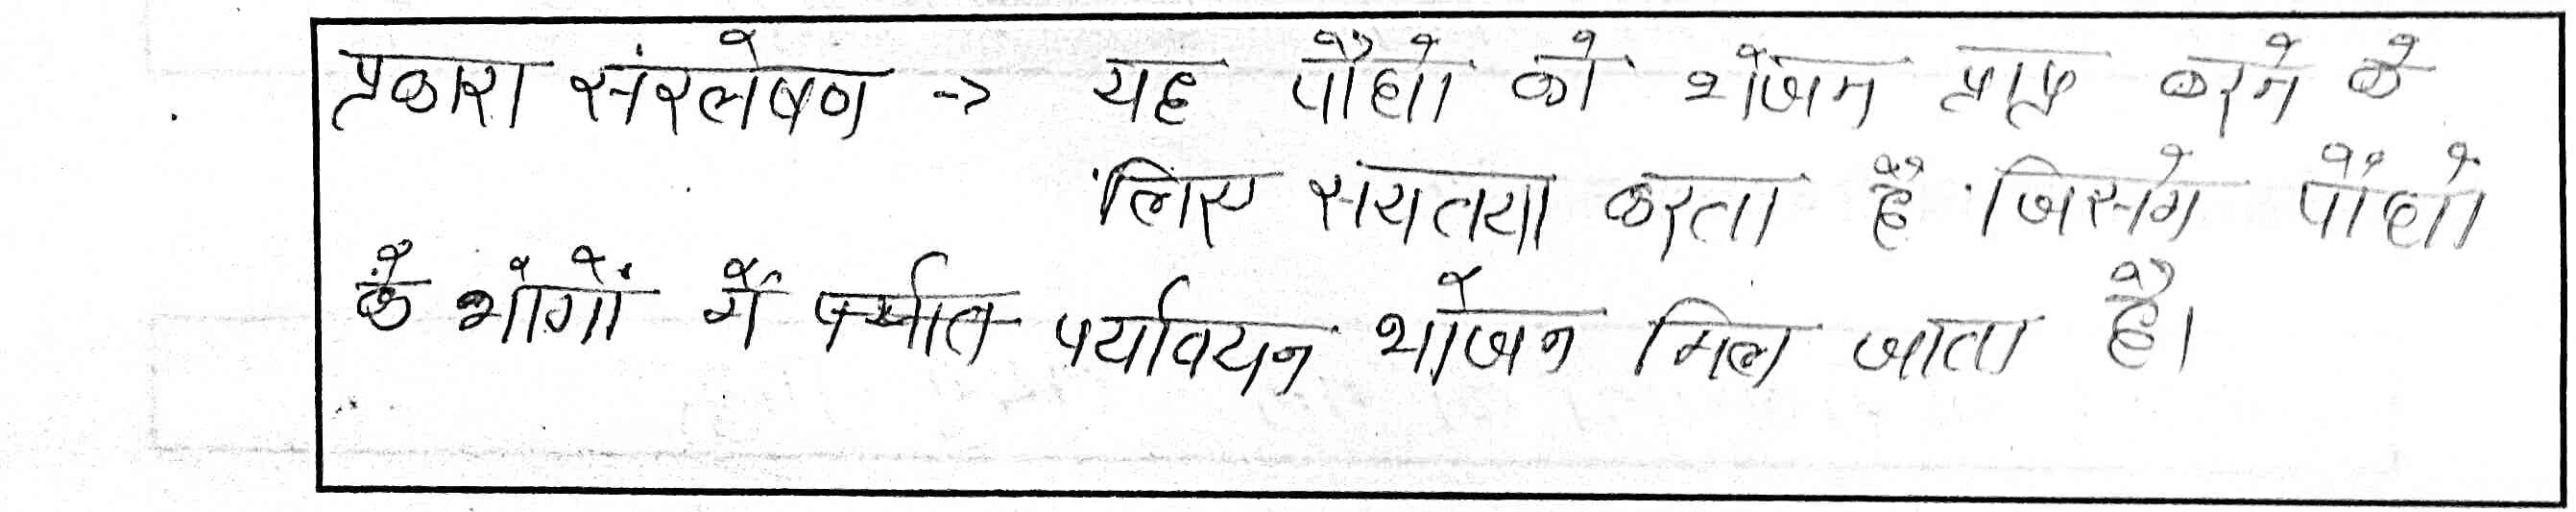 प्रकाश संश्लेषण -> यह पौधो को भोजन प्राप्त करने के
लिए सयतया करता है जिसमे पौधो
के भागों में पर्यावयन भोजन मिल जाता है।